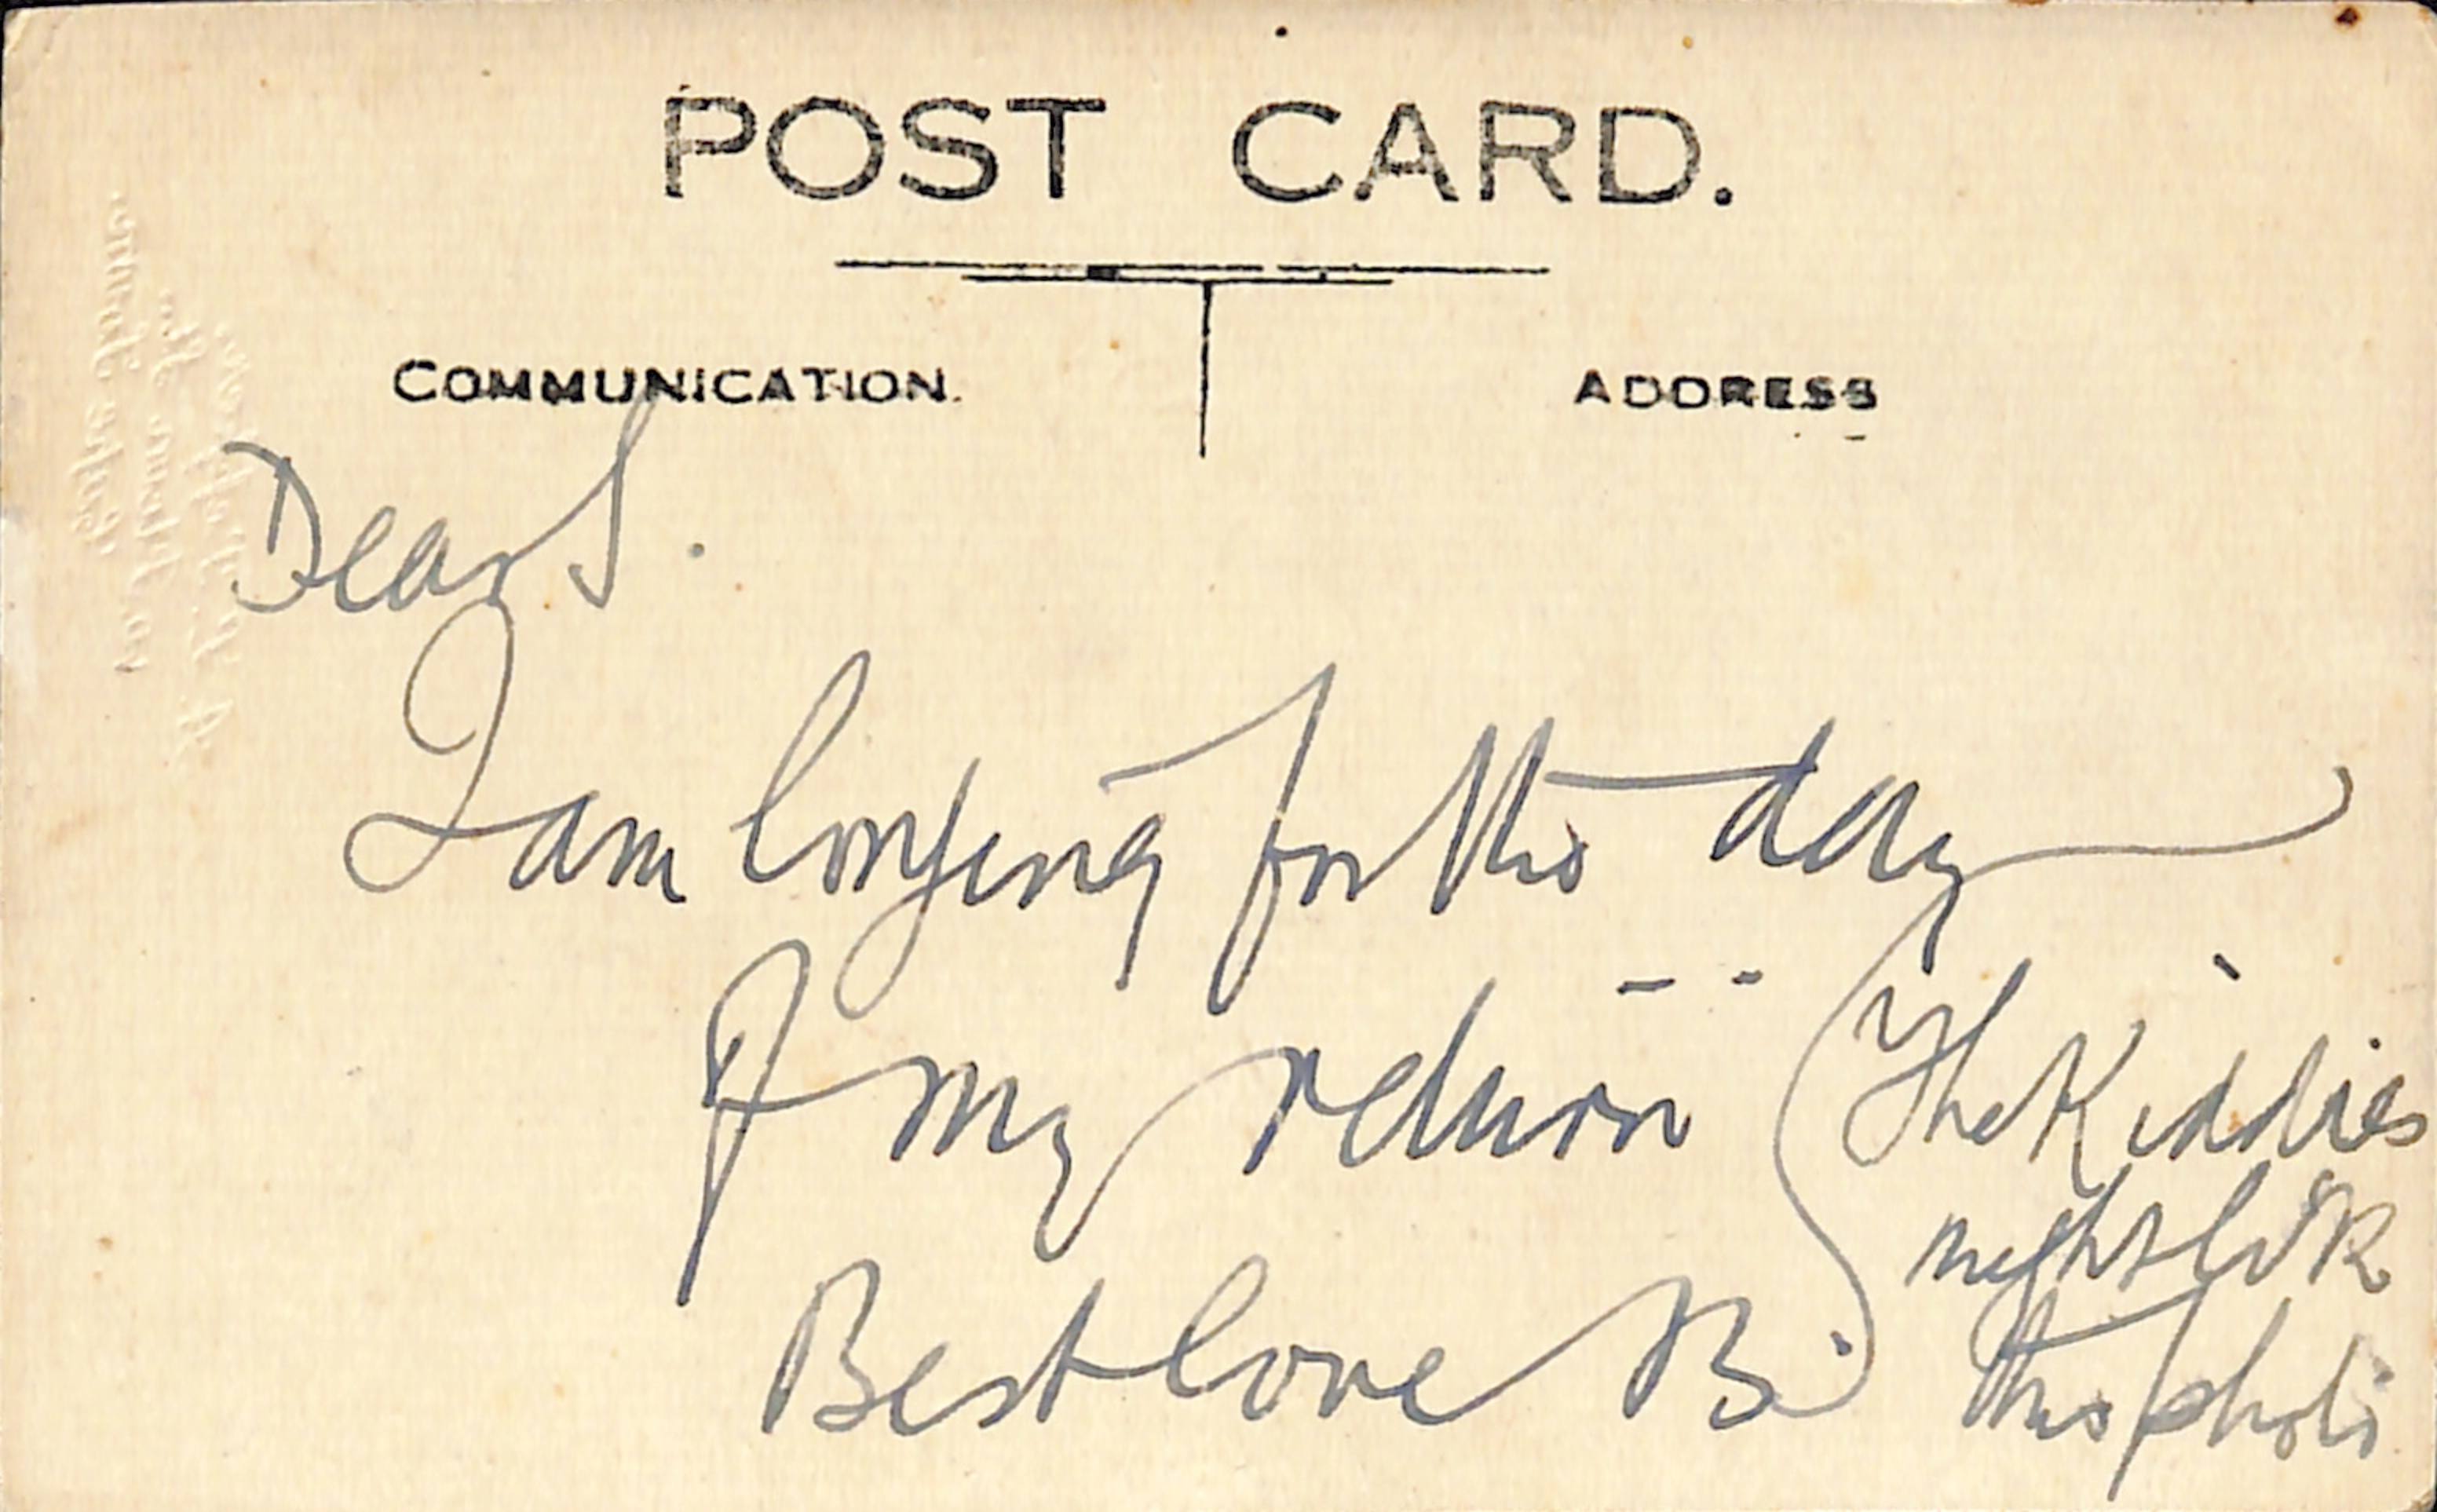 POST CARD.
COMMUNICATION.
ADDRESS
Dear S.
I am longing for the day
of my return
Best love B.
The Kiddies
might like
this photo